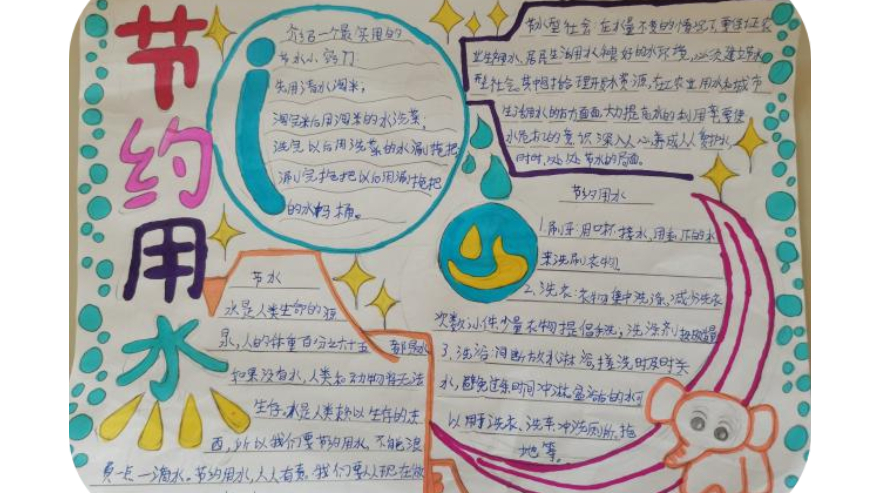 节约用水
介绍一个最实用的
节水小窍门:
先用清水淘米,
淘完米后用淘米的水洗菜;
洗完以后用洗菜的水涮拖把
涮完拖把以后用涮拖把
的水冲桶。
节水型社会:在水量不变的情况下,要保证农
业生产用水、居民生活用水和良好的水环境,必须建立节水
型社会。其中包括合理开发水资源,在工农业用水和城市
生活用水的方方面面,大力提高水的利用率,要使
水危机的意识深入人心,养成人人爱护水
时时,处处节水的局面。
节约用水
1.刷牙:用口杯接水,用剩下的水
来洗刷衣物。
2、洗衣:衣物集中洗涤,减少洗衣
次数;小件少量衣物提倡手洗;洗涤剂
3、洗浴:间断放水淋浴,搓洗时及时关
水,避免过长时间冲淋。盆浴后的水可
以用于洗衣、洗车冲洗厕所、拖
地等。
节水
水是人类生命的源
泉,人的体重百分之六十五都是水
如果没有水,人类和动物将无法
生存。水是人类赖以生存的东
西,所以我们要节约用水,不能浪
费一点一滴水。节约用水,人人有责。我们要从现在做